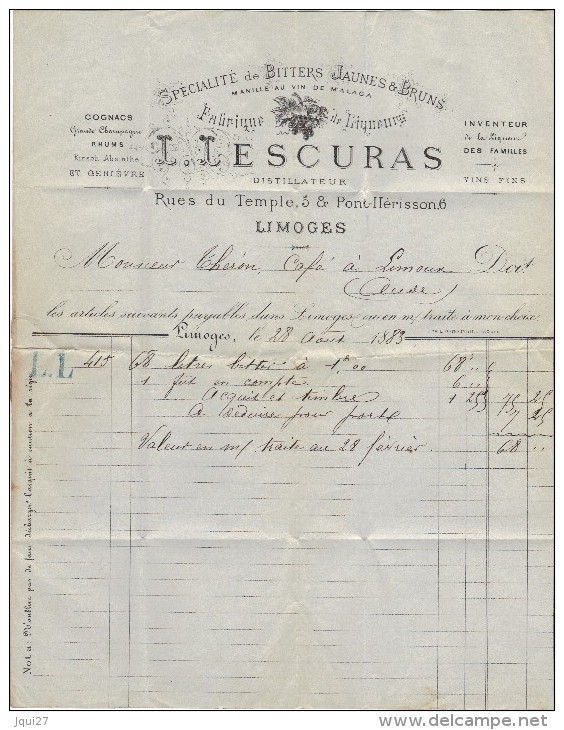 SPÉCIALITÉ de BITTERS JAUNES & BRUNS
MANILLE AU VIN DE MALAGA
Fabrique de Liqueurs
COGNACS
Grande Champagne
RHUMS
Kirsch, Absinthe
ET GENIÈVRE
INVENTEUR
de la Liqueur
DES FAMILLES
VINS FINS
L. LESCURAS
DISTILLATEUR
Rues du Temple, 5 & Pont-Hérisson, 6
LIMOGES
Monsieur Théron, Café à Limoux Doit
(Aude)
les articles suivants payables dans Limoges ou en m/ traite à mon choix.
Limoges, le 28 Août 1883
L.L 415 68 litres bitter à 1f,00 68 "
1 fût en compte 6 "
Acquit et timbre 1 25 75 25
à déduire pour port 7 25
Valeur en m/ traite au 28 février. 68 "
Nota: N'oubliez pas de faire décharger l'acquit à caution à la régie
Jqui27
www.delcampe.net